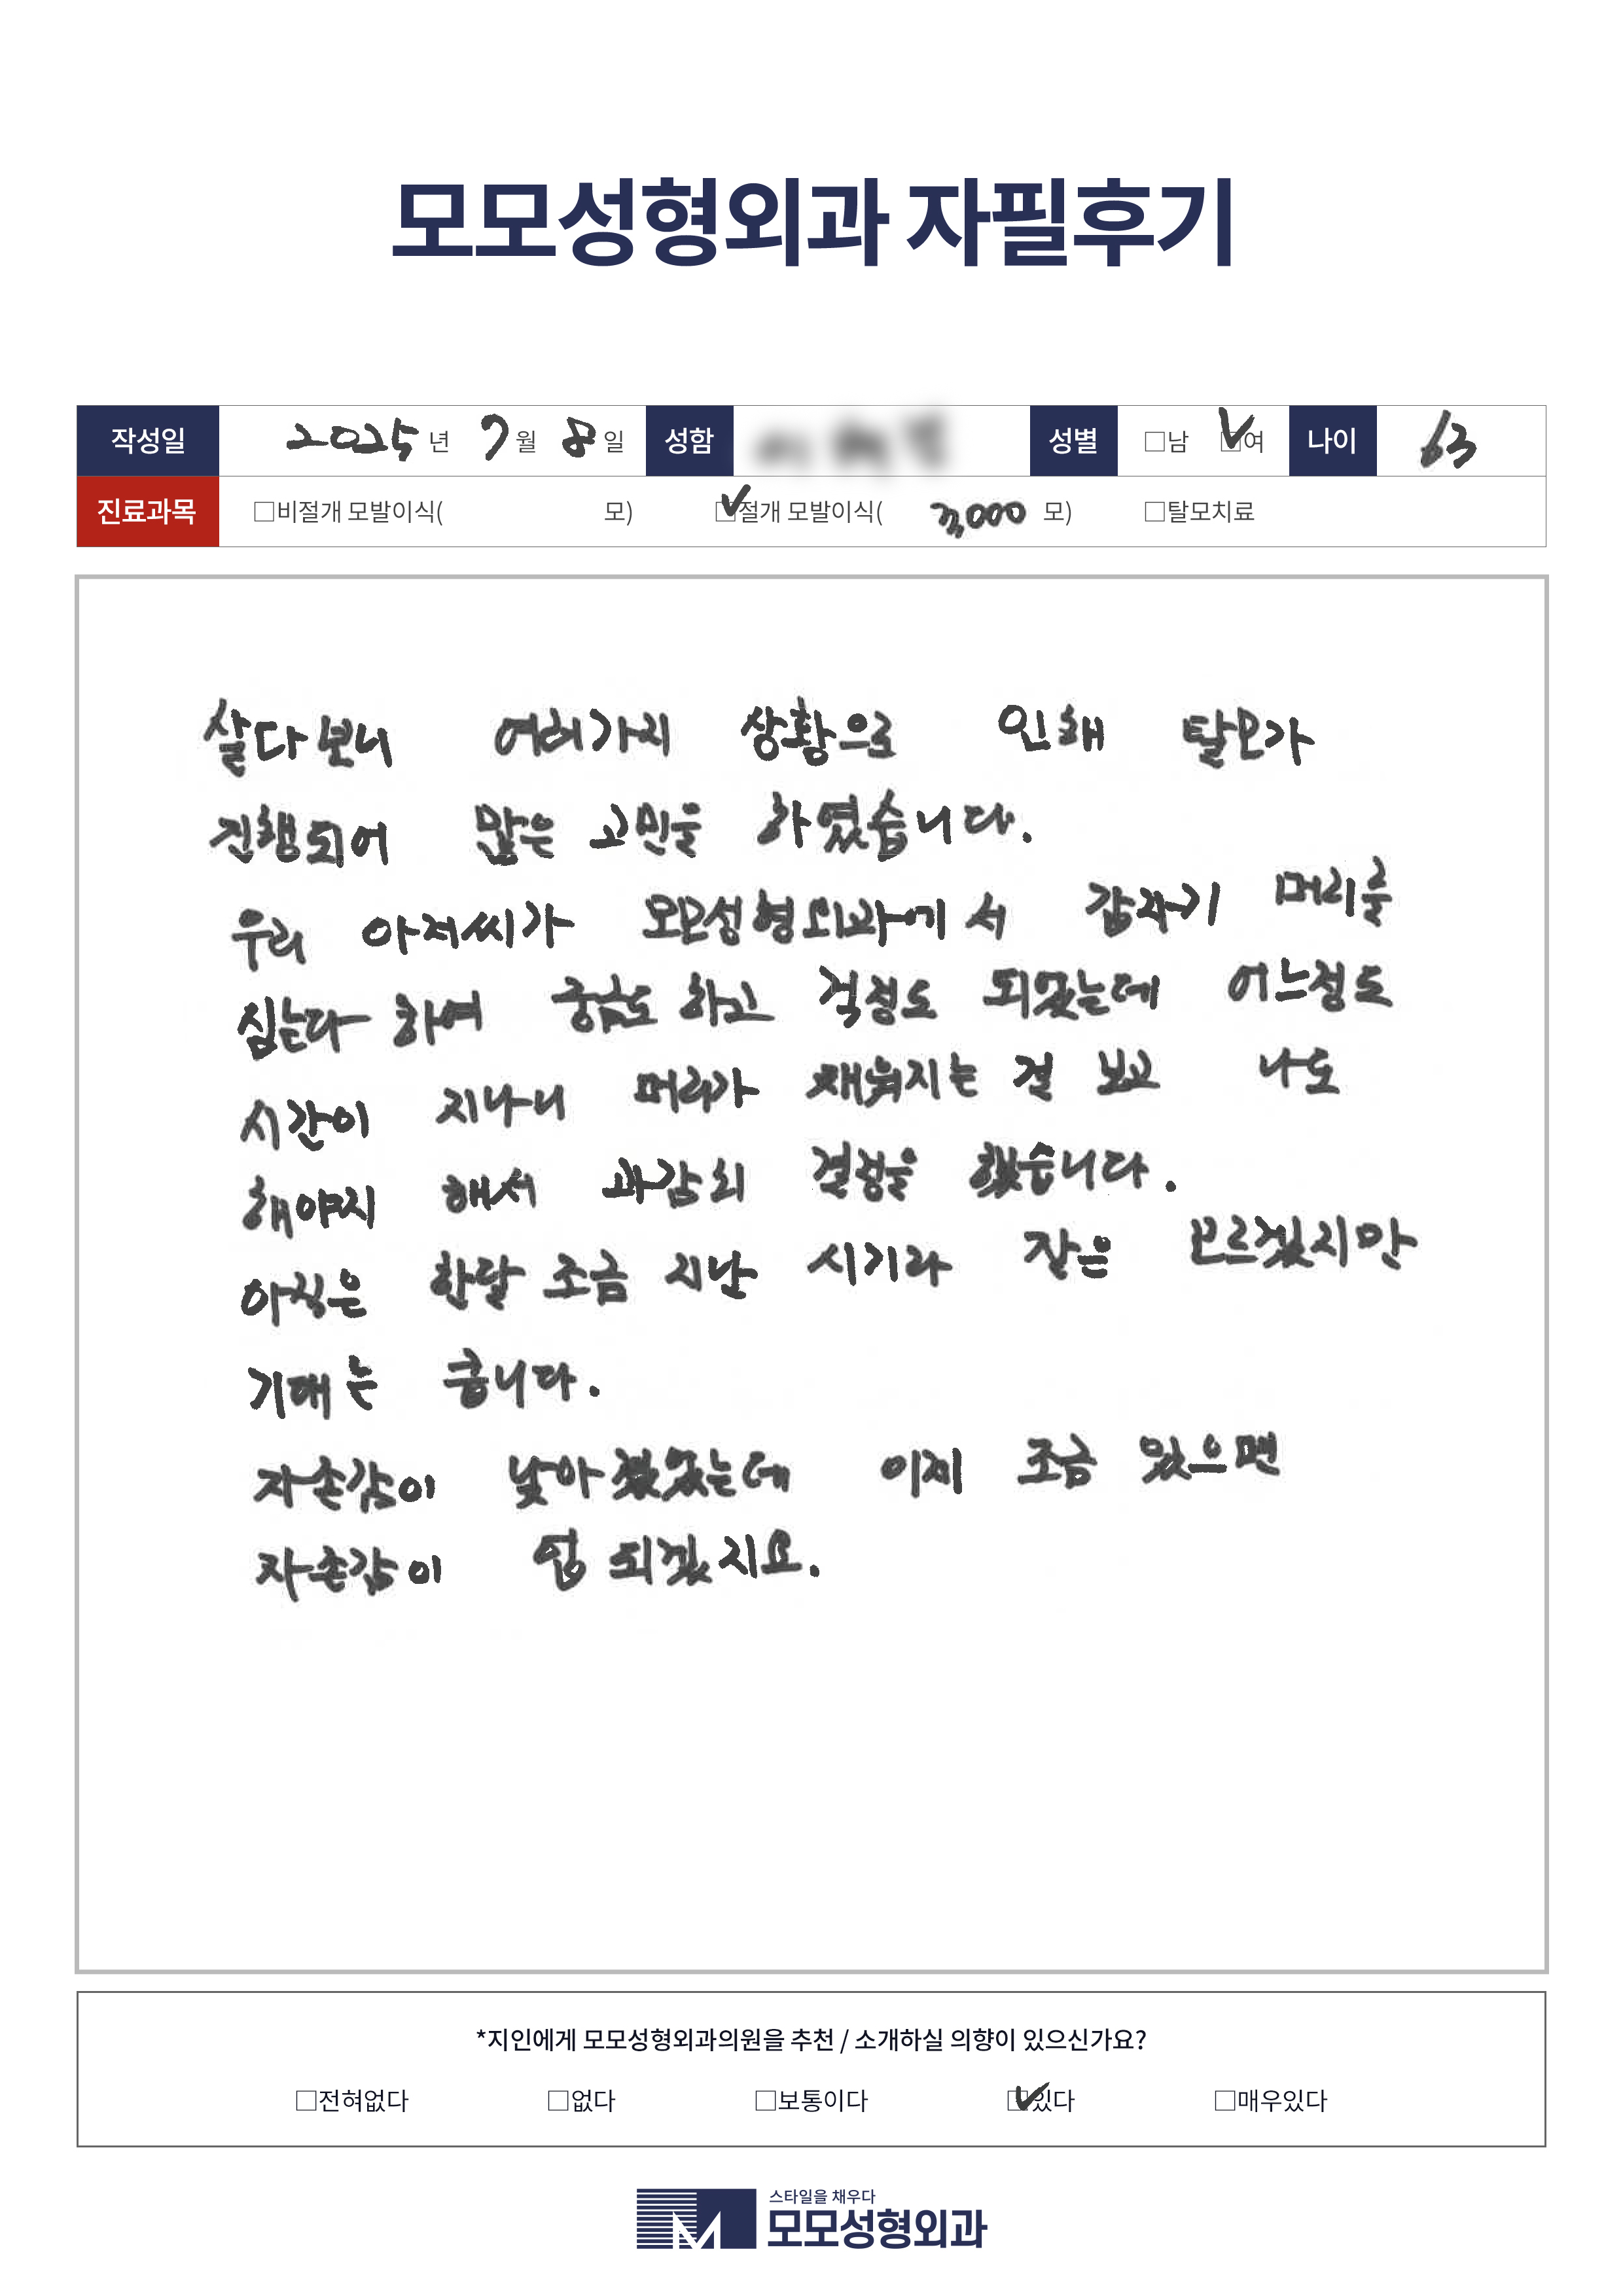 모모성형외과 자필후기
작성일 2025년 7월 8일 성함 성별 □남 ☑여 나이 63
진료과목 □비절개 모발이식( 모) ☑절개 모발이식( 3,000 모) □탈모치료
살다보니 여러가지 상황으로 인해 탈모가
진행되어 많은 고민을 하였습니다.
우리 아저씨가 모모성형외과에서 갑자기 머리를
심는다 하여 궁금도 하고 걱정도 되었는데 어느정도
시간이 지나니 머리가 채워지는 걸 보고 나도
해야지 해서 과감히 결정을 했습니다.
아직은 한달 조금 지난 시기라 잘은 모르겠지만
기대는 큽니다.
자존감이 낮아졌었는데 이제 조금 있으면
자존감이 업 되겠지요.
*지인에게 모모성형외과의원을 추천 / 소개하실 의향이 있으신가요?
□전혀없다 □없다 □보통이다 ☑있다 □매우있다
스타일을 채우다
모모성형외과